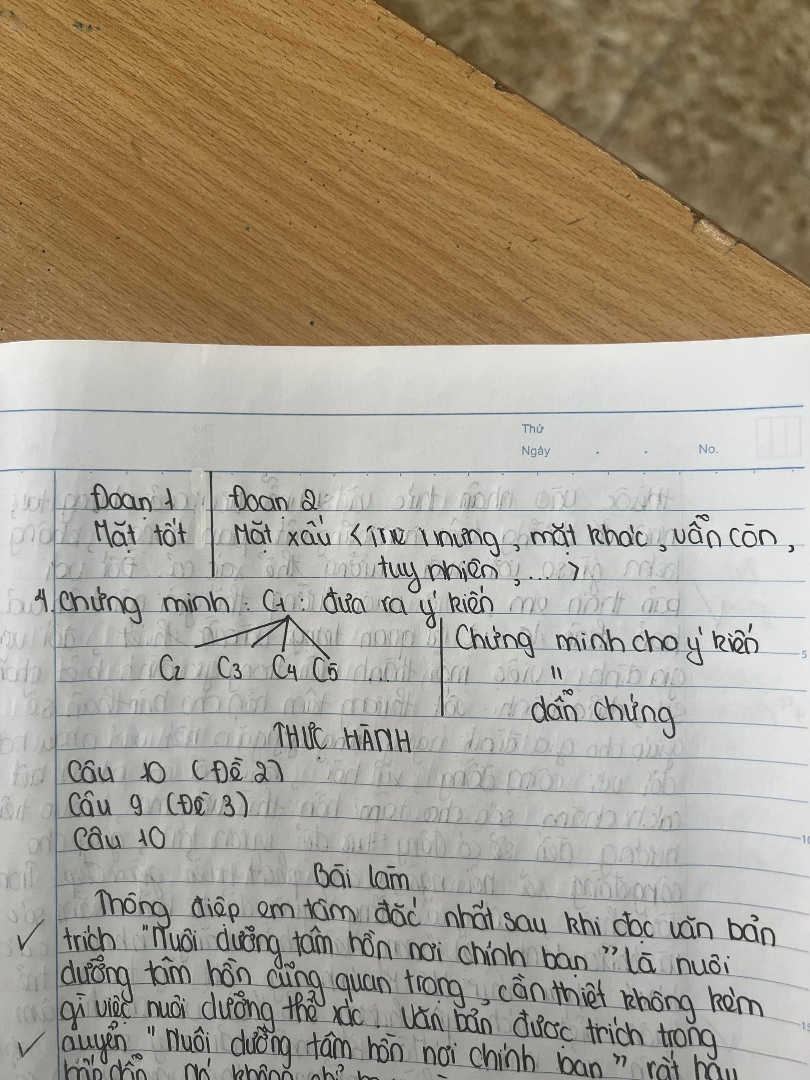 Thứ
Ngày . . No.
Đoạn 1 Đoạn 2
Mặt tốt Mặt xấu < nhưng, mặt khác, vẫn còn,
tuy nhiên, ...>
4. Chứng minh: C1: đưa ra ý kiến
Chứng minh cho ý kiến
C2 C3 C4 C5
"
dẫn chứng
THỰC HÀNH
Câu 10 (Đề 2)
Câu 9 (Đề 3)
Câu 10
Bài làm
Thông điệp em tâm đắc nhất sau khi đọc văn bản
trích "Nuôi dưỡng tâm hồn nơi chính bạn" là nuôi
dưỡng tâm hồn cũng quan trọng, cần thiết không kém
gì việc nuôi dưỡng thể xác. Văn bản được trích trong
quyển "Nuôi dưỡng tâm hồn nơi chính bạn" rất hay